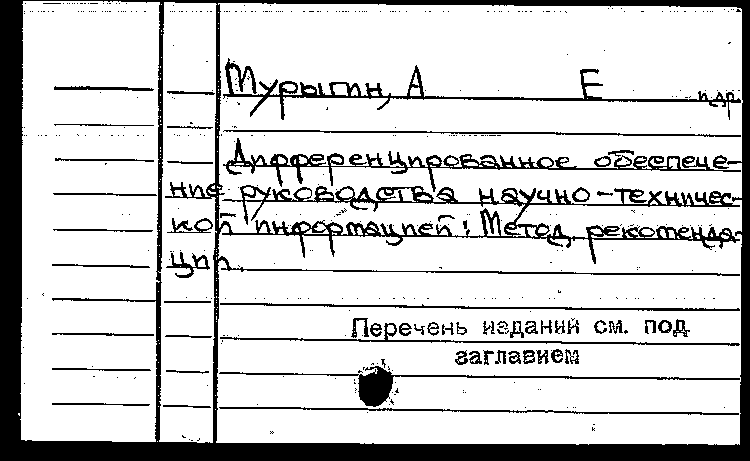 Мурыгин, А Е и др
Дифференцированное обеспече-
ние руководства научно-техничес-
кой информацией: Метод. рекоменда-
ции.
Перечень изданий см. под
заглавием